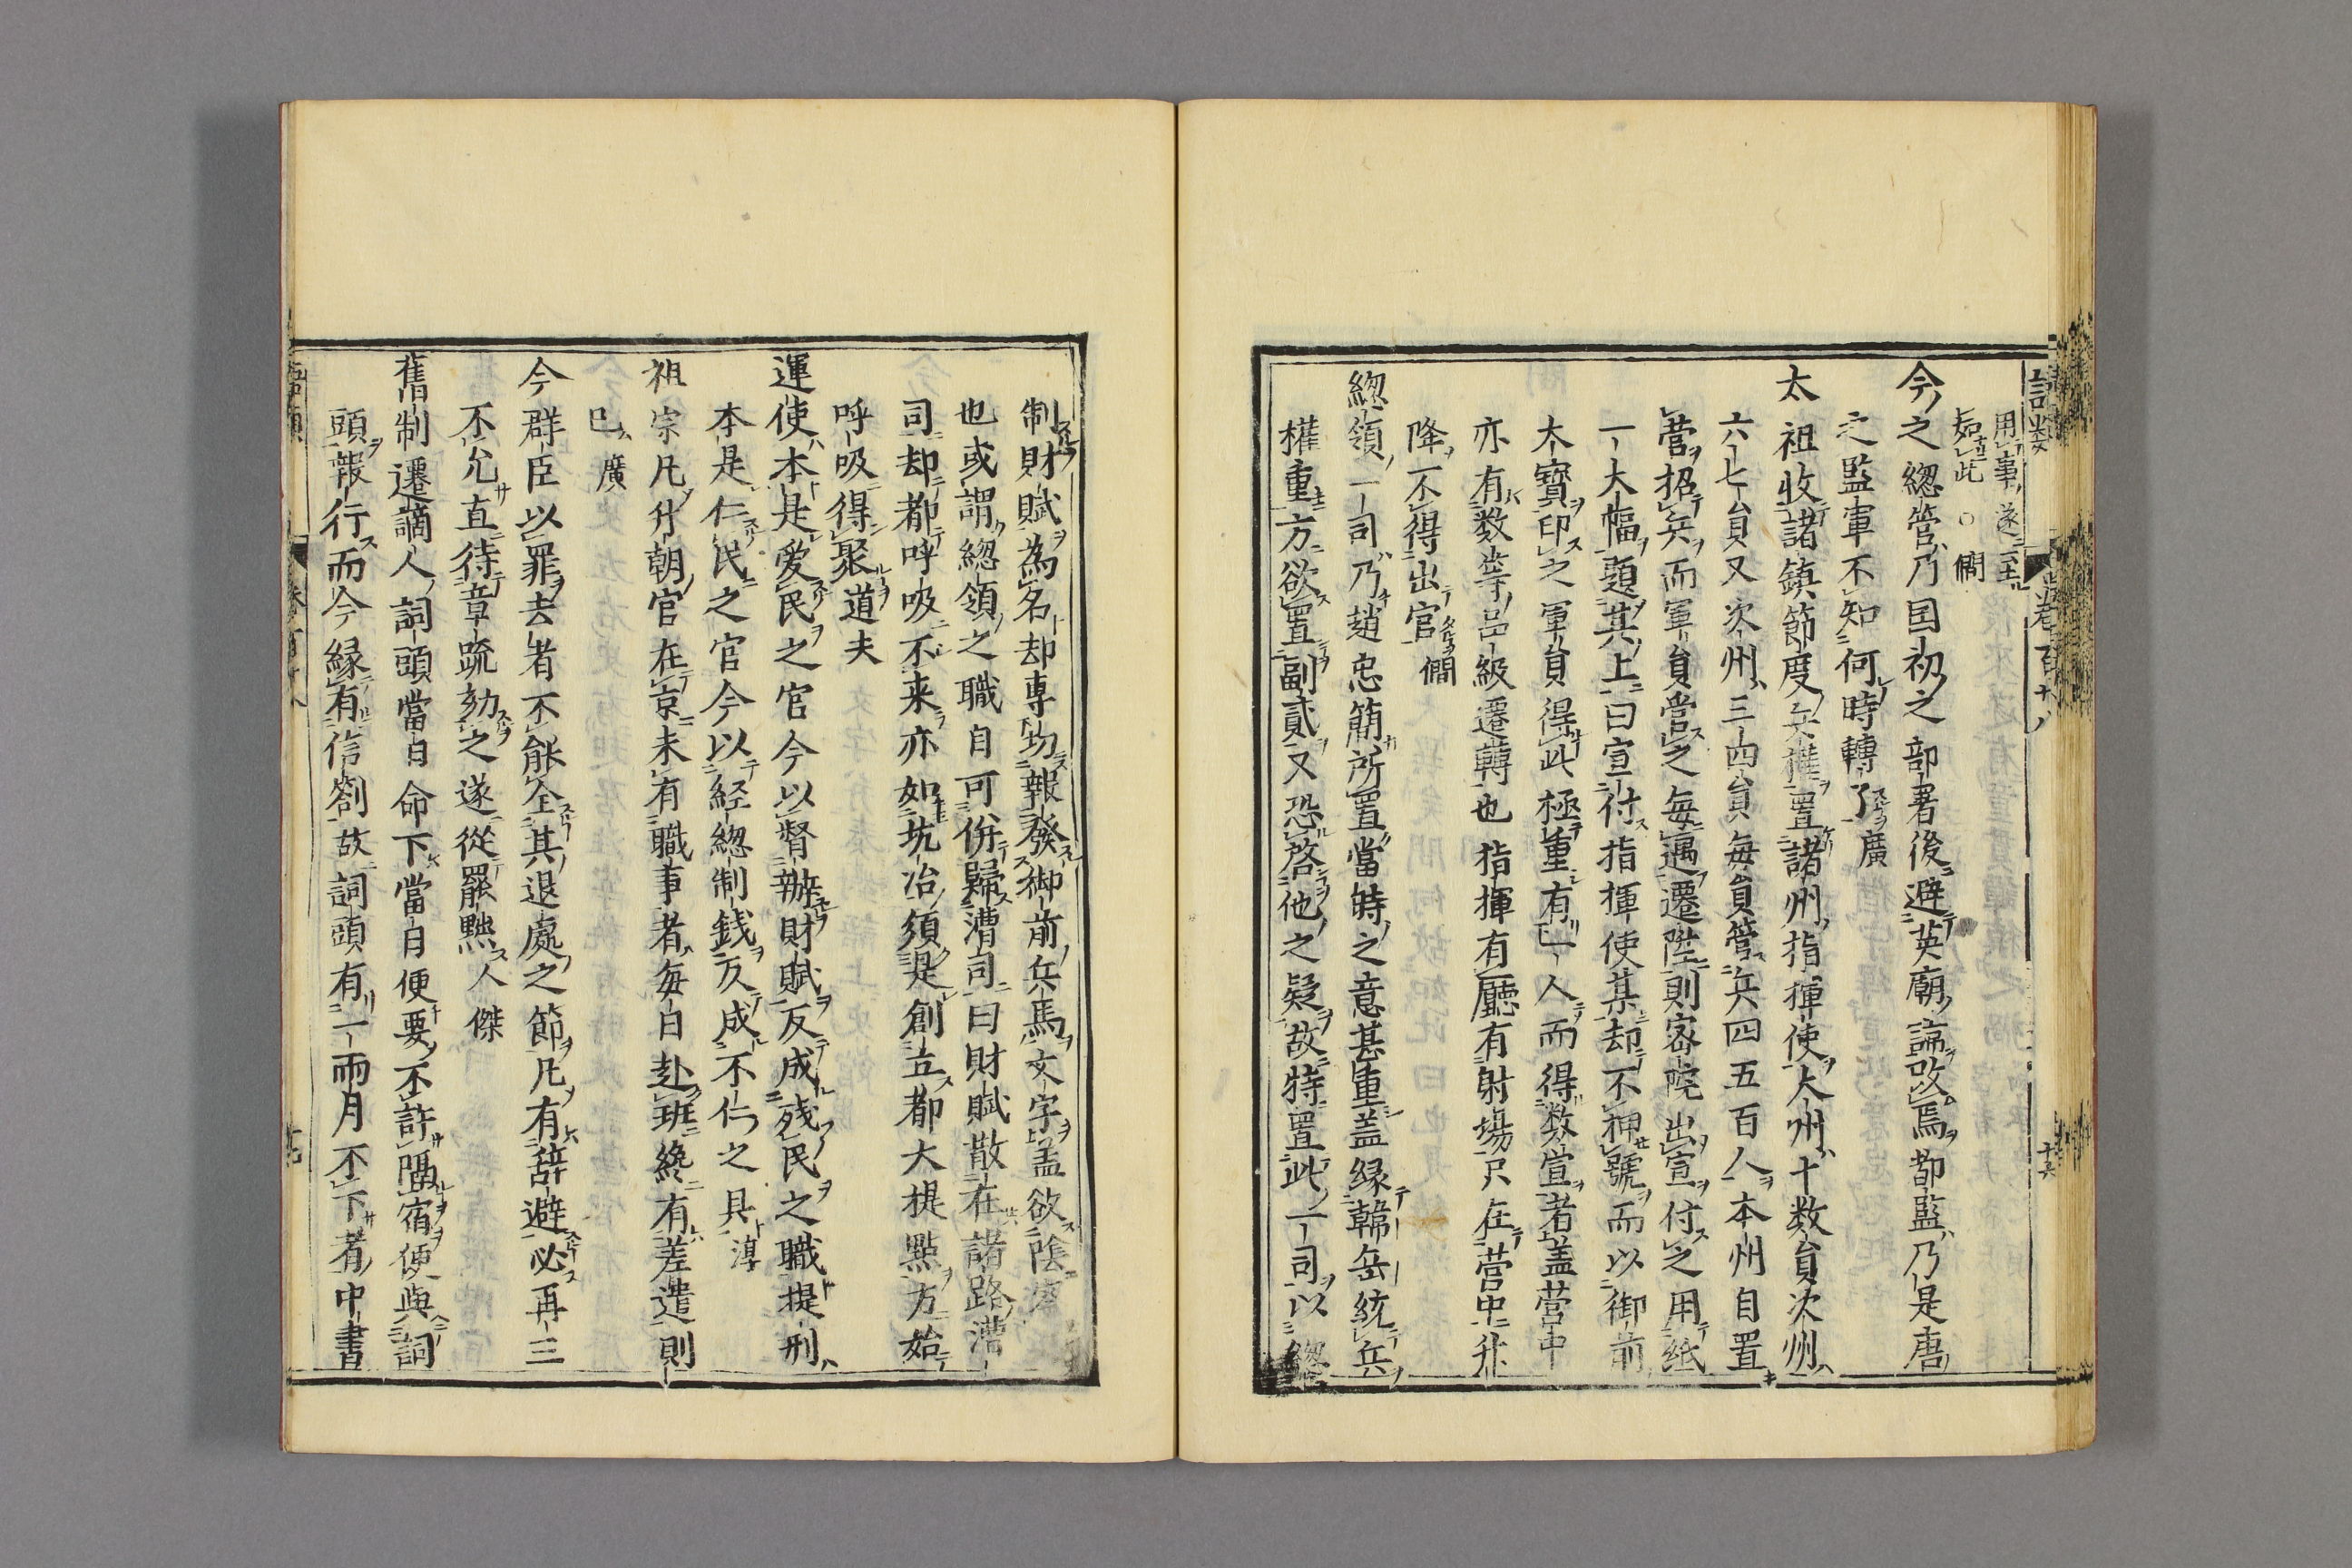 用事遂至
如此 ○ 僩
今之總管乃国初之部署後避英廟諱改焉都監乃是唐
之監軍不知何時轉了廣
太祖收諸鎮節度兵權置諸州指揮使大州十数員次州
六七員又次州三四員每員管兵四五百人本州自置
營招兵而軍員管之每遇遷陞則密院出宣付之用紙
一大幅題其上曰宣付指揮使某却不押號而以御前
大寶印之軍員得此極重有一人而得数宣者盖营中
亦有数等品級遷轉也指揮有廳有射場只在营中升
降不得出官僩
總領一司乃趙忠簡所置當時之意甚重盖縁韓岳統兵
權重方欲置副貳又恐啓他之疑故特置此一司以總
制財賦為名却専切報發御前兵馬文字盖欲陰
也或謂總領之職自可併歸漕司曰財賦散在諸路漕
司却都呼吸不来亦如坑冶須是創立都大提點方始
呼吸得聚道夫
運使本是愛民之官今以督辦財賦反成殘民之職提刑
本是仁民之官今以経總制銭反成不仁之具淳
祖宗凡升朝官在京未有職事者每日赴班終有差遣則
已廣
今群臣以罪去者不能全其退處之節凡有辞避必再三
不允直待章疏劾之遂從罷黜人傑
舊制遷謫人詞頭當日命下當日便要不許隔宿便與詞
頭報行而今縁有信劄故詞頭有一兩月不下者中書